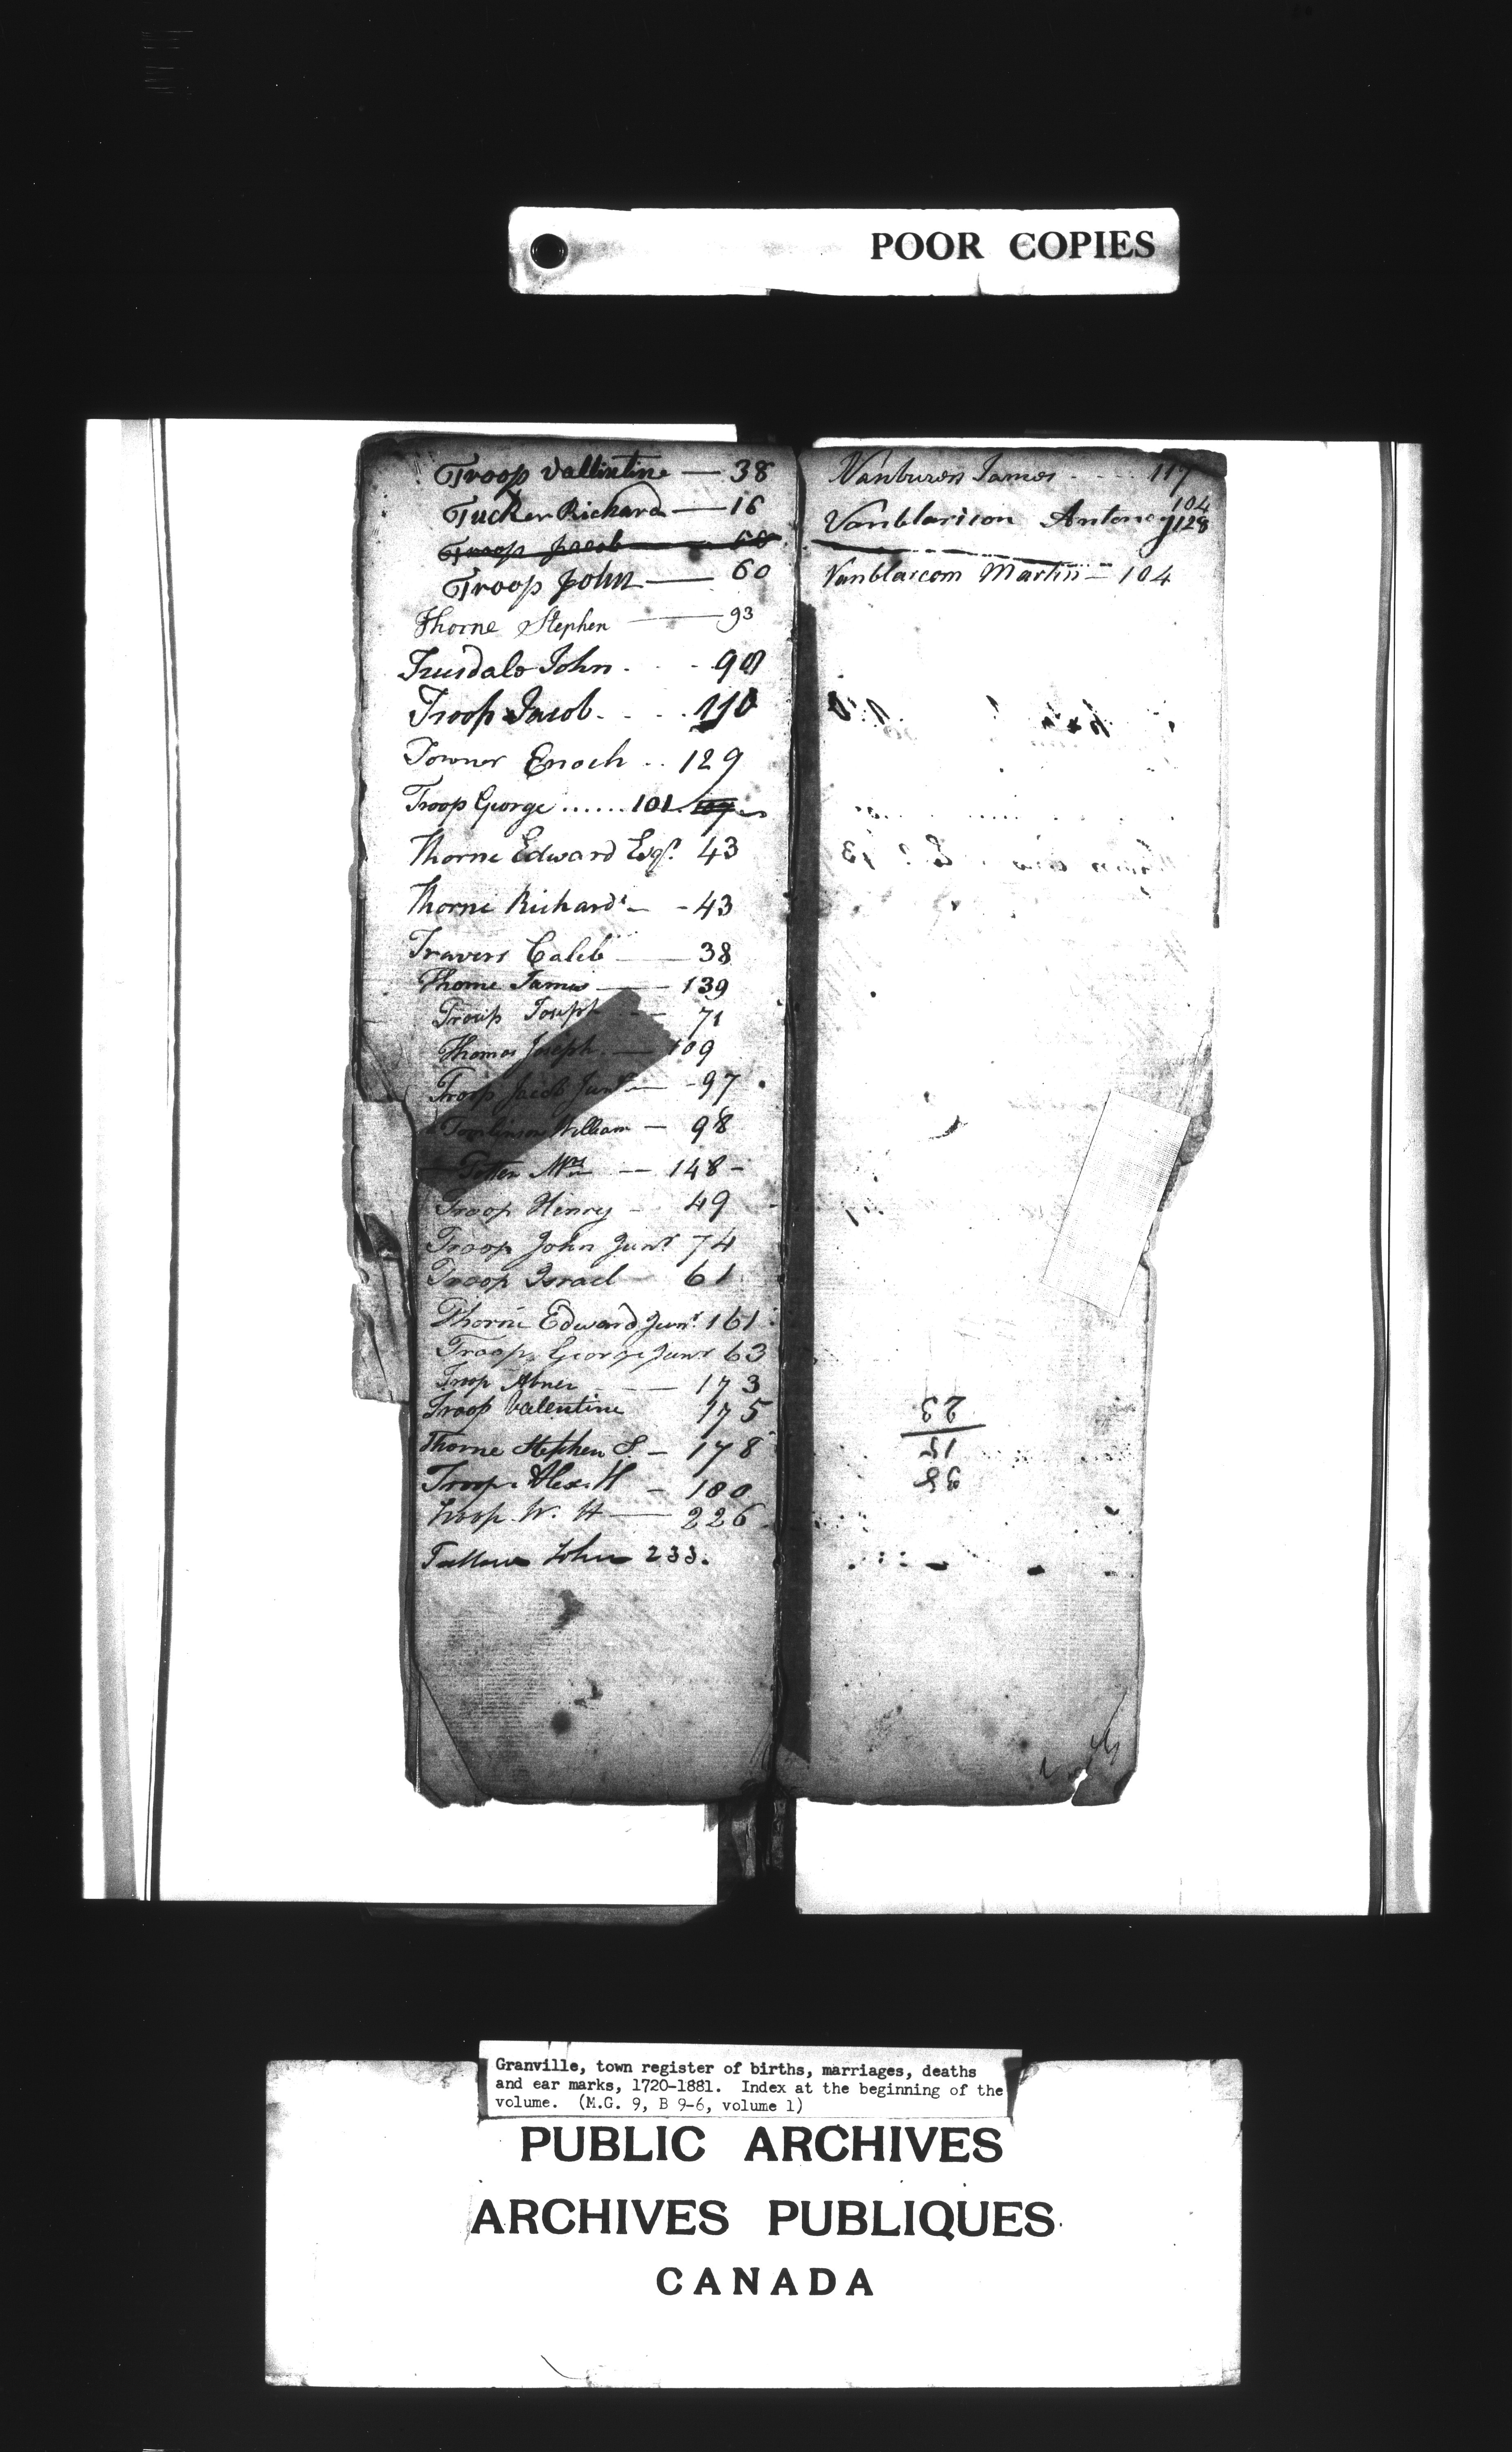 POOR COPIES
Troop Vallintine — 38
Tucker Richard — 16
Troop Jacob — 60
Troop John — 60
Thorne Stephen — 93
John . . . 90
Troop Jacob . . . . 110
Towner Enoch . . 129
Troop George ...... 101
Thorne Edward Esqr. 43
Thorne Richard — - 43
Travers Caleb — 38
Thorne James — 139
Troop Joseph — 71
Thomas Joseph — 109
Troop Jacob Junr — 97
Tomlinson William — 98
Mrs — 148 -
Troop Henry - 49
Troop John Junr 74
Troop Israel 61
Thorne Edward Junr. 161
Troop George Junr 63
Troop Abner — 173
Troop Valentine 175
Thorne Stephen S. - 178
Troop Alex. H - 180
Troop W. H — 226
John 233.
Vanburen James . . . . 117
104
Vanblaricon Antoney 128
Vanblarcom Martin — 104
38
15
23
Granville, town register of births, marriages, deaths
and ear marks, 1720-1881. Index at the beginning of the
volume. (M.G. 9, B 9-6, volume 1)
PUBLIC ARCHIVES
ARCHIVES PUBLIQUES
CANADA